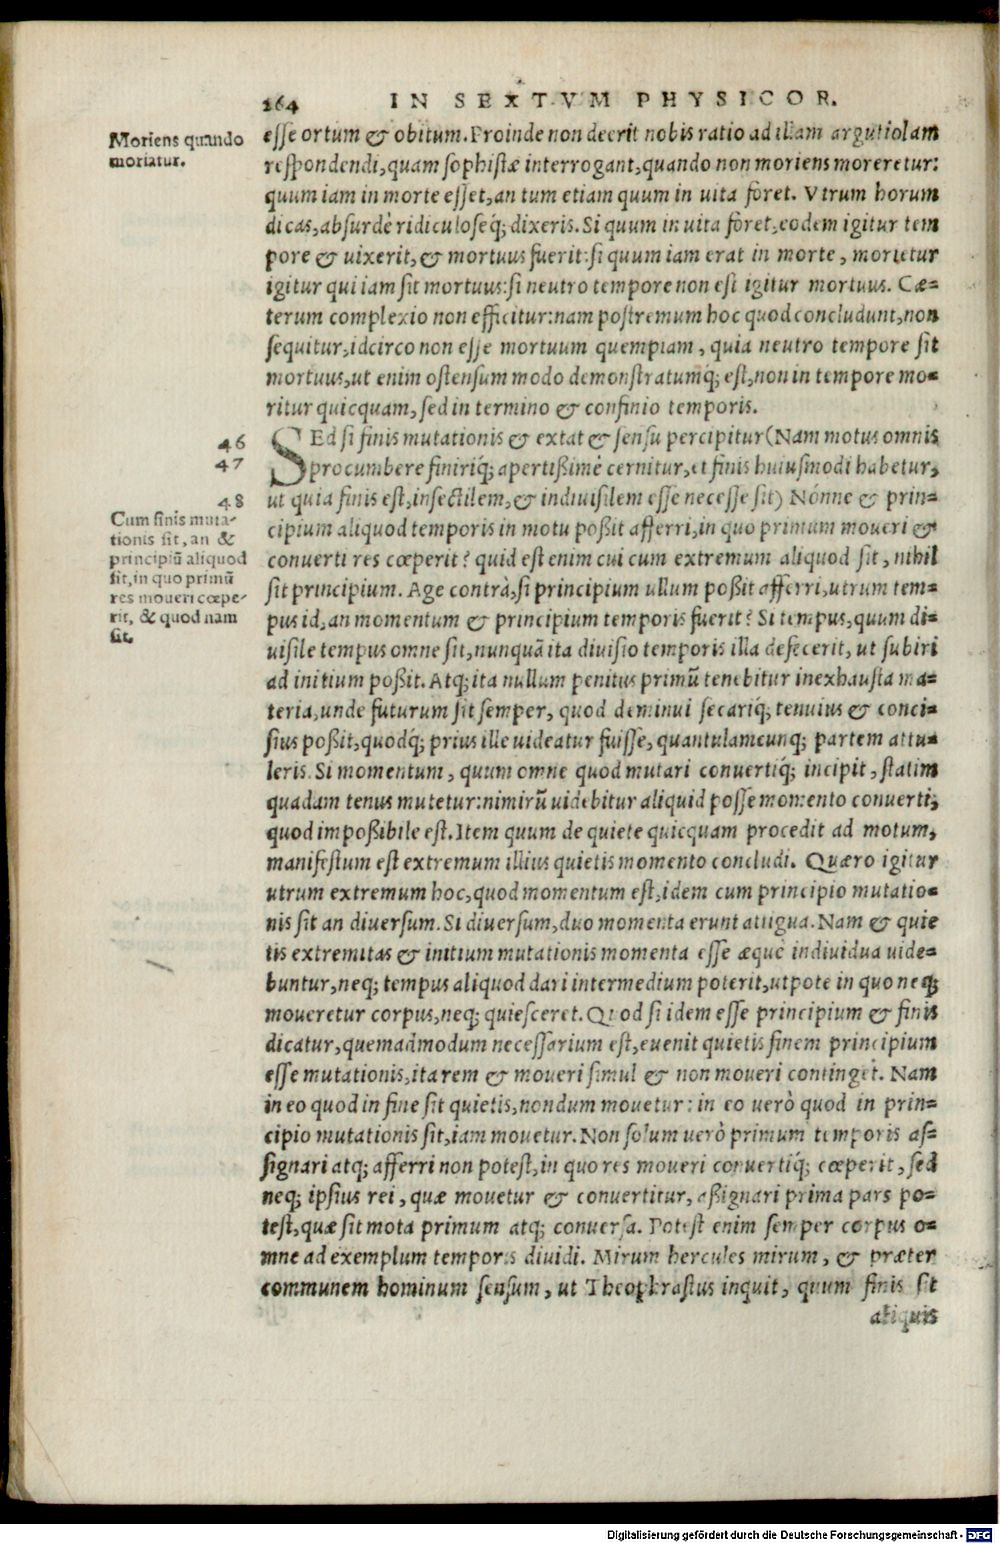 264 IN SEXTVM PHYSICOR.
Moriens quando
moriatur.
esse ortum & obitum. Proinde non deerit nobis ratio ad illam argutiolam
respondendi, quam sophistæ interrogant, quando non moriens moreretur:
quum iam in morte esset, an tum etiam quum in uita foret. Vtrum horum
dicas, absurdè ridiculoseq́; dixeris. Si quum in uita foret, eodem igitur tem
pore & uixerit, & mortuus fuerit: si quum iam erat in morte, morietur
igitur qui iam sit mortuus: si neutro tempore non est igitur mortuus. Cæ-
terum complexio non efficitur: nam postremum hoc quod concludunt, non
sequitur, idcirco non esse mortuum quempiam, quia neutro tempore sit
mortuus, ut enim ostensum modo demonstratumq́; est, non in tempore mo-
ritur quicquam, sed in termino & confinio temporis.
46
47
48
Cum finis muta-
tionis sit, an &
principiũ aliquod
sit, in quo primũ
res moueri cœpe-
rit, & quod nam
sit.
SEd si finis mutationis & extat & sensu percipitur (Nam motus omnis
procumbere finiriq́; apertißimè cernitur, et finis huiusmodi habetur,
ut quia finis est, insectilem, & indiuisilem esse necesse sit) Nónne & prin-
cipium aliquod temporis in motu poßit afferri, in quo primum moueri &
conuerti res cœperit? quid est enim cui cum extremum aliquod sit, nihil
sit principium. Age contrà, si principium ullum poßit afferri, utrum tem-
pus id, an momentum & principium temporis fuerit? Si tempus, quum di-
uisile tempus omne sit, nunquã ita diuisio temporis illa defecerit, ut subiri
ad initium poßit. Atq; ita nullum penitus primũ tenebitur inexhausta ma-
teria, unde futurum sit semper, quod deminui secariq́; tenuius & conci-
sius poßit, quodq́; prius ille uideatur fuisse, quantulamcunq; partem attu-
leris. Si momentum, quum omne quod mutari conuertiq́; incipit, statim
quadam tenus mutetur: nimirũ uidebitur aliquid posse momento conuerti,
quod impoßibile est. Item quum de quiete quicquam procedit ad motum,
manifestum est extremum illius quietis momento concludi. Quæro igitur
utrum extremum hoc, quod momentum est, idem cum principio mutatio-
nis sit an diuersum. Si diuersum, duo momenta erunt attigua. Nam & quie
tis extremitas & initium mutationis momenta esse æquè indiuidua uide-
buntur, neq; tempus aliquod dari intermedium poterit, utpote in quo neq;
moueretur corpus, neq; quiesceret. Quod si idem esse principium & finis
dicatur, quemadmodum necessarium est, euenit quietis finem principium
esse mutationis, ita rem & moueri simul & non moueri continget. Nam
in eo quod in fine sit quietis, nondum mouetur: in eo uerò quod in prin-
cipio mutationis sit, iam mouetur. Non solum uerò primum temporis as-
signari atq; afferri non potest, in quo res moueri conuertiq́; cœperit, sed
neq; ipsius rei, quæ mouetur & conuertitur, aßignari prima pars po-
test, quæ sit mota primum atq; conuersa. Potest enim semper corpus o-
mne ad exemplum temporis diuidi. Mirum hercules mirum, & præter
communem hominum sensum, ut Theophrastus inquit, quum finis sit
aliquis
Digitalisierung gefördert durch die Deutsche Forschungsgemeinschaft - DFG